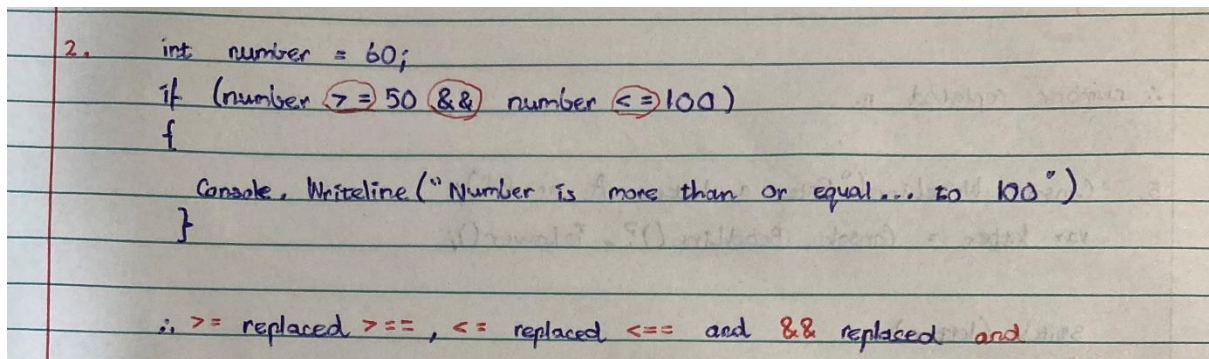 2. int number = 60;
if (number >= 50 && number <= 100)
{
Console. Writeline ("Number is more than or equal... to 100")
}
∴ >= replaced >==, <= replaced <== and && replaced and